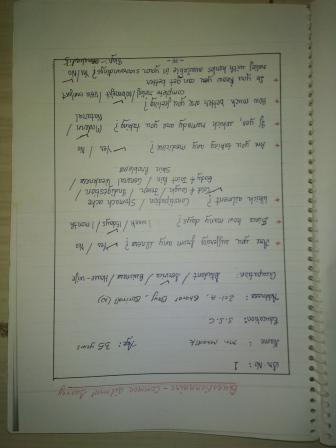 Questionnaire - Common ailment Survey
Sr. No : 1
Name : Mr.
Age : 35 years
Education : S.S.C
Address :
Occupation : Student / Service / Business / House-wife
Are you suffering from any illness? Yes / No
Since how many days? 1 week / 10 days / 1 month
Which ailment? Constipation, Stomach ache
Cold + Cough / Fever / Indigestion
Body + Joint Pain / General Weakness
Skin Problems
Are you taking any medicine? Yes / No
If yes, which remedy are you taking? Modern /
Natural
How much better you are feeling?
complete relief / / less comfort
Do you know you can get better
relief with herbs available in your surroundings? Yes / No